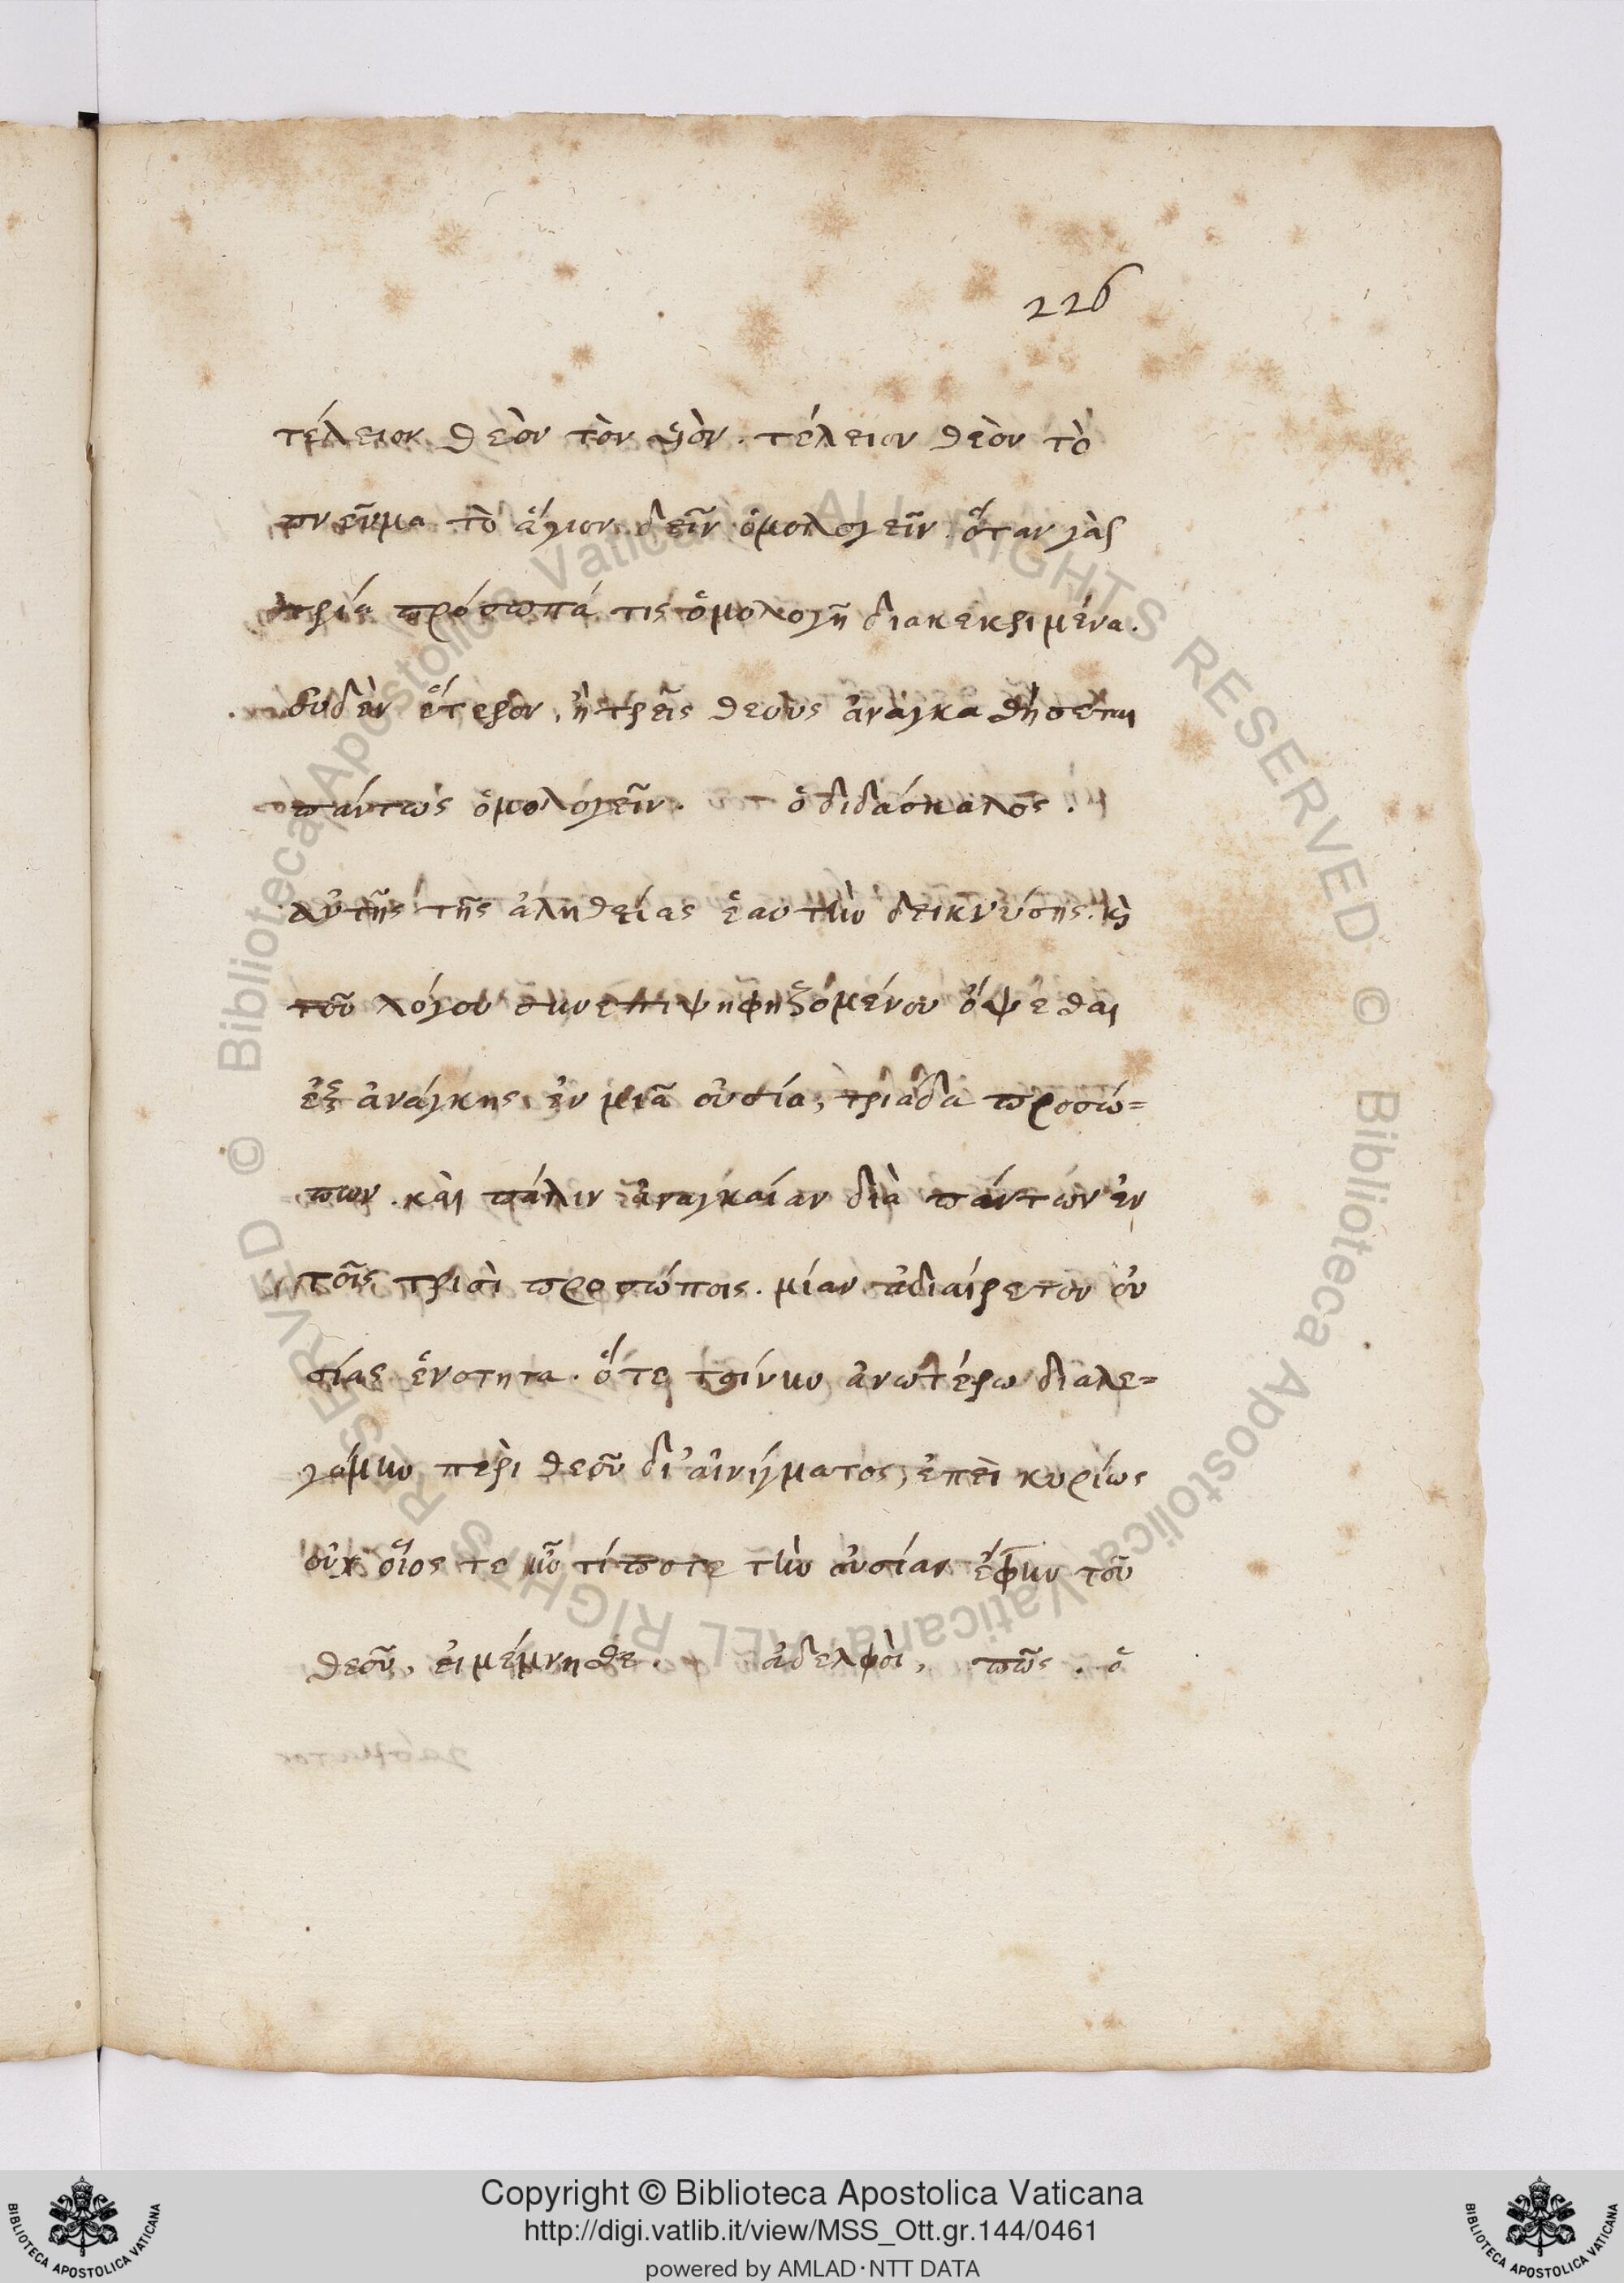 226
τέλειον θεὸν τὸν ὑὸν. τέλειον θεὸν τὸ
πνεῦμα τὸ ἅγιον δεῖν ὁμολογεῖν. ὅταν γὰρ
τρία πρόσωπά τις ὁμολογῆ διακεκριμένα.
οὐδὲν ἕτερον, ἢ τρεῖς θεοὺς ἀναγκασθήσεται
πάντως ὁμολογεῖν. ὁ διδάσκαλος.
αὐτῆς τῆς ἀληθείας ἑαυτὴν δεικνύσης. κὶ
τοῦ λόγου συνεπιψηφηζομένου ὄψεσθαι
ἐξ ἀνάγκης ἐν μιᾶ οὐσία, τριάδα προσώ=
πων. καὶ πάλιν ἀναγκαίαν διὰ πάντων ἐν
τοῖς τρισὶ προσώποις. μίαν ἀδιαίρετον οὐ
σίας ἑνότητα. ὅτε τοίνυν ἀνωτέρω διαλε=
γόμην περὶ θεοῦ δι' αἰνίγματος, ἐπεὶ κυρίως
οὐχ οἷος τε ἦν τίποτε τὴν οὐσίαν ἔφην τοῦ
θεοῦ. εἰ μέμνησθε. ἀδελφοὶ, πῶς. ὁ
Copyright © Biblioteca Apostolica Vaticana
http://digi.vatlib.it/view/MSS_Ott.gr.144/0461
powered by AMLAD·NTT DATA
BIBLIOTECA APOSTOLICA VATICANA
BIBLIOTECA APOSTOLICA VATICANA
© Biblioteca Apostolica Vaticana ALL RIGHTS RESERVED
© Biblioteca Apostolica Vaticana ALL RIGHTS RESERVED